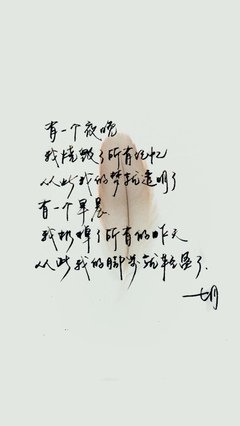 有一个夜晚
我烧毁了所有记忆
从此我的梦就透明了
有一个早晨
我扔掉了所有的昨天
从此我的脚步就轻盈了.